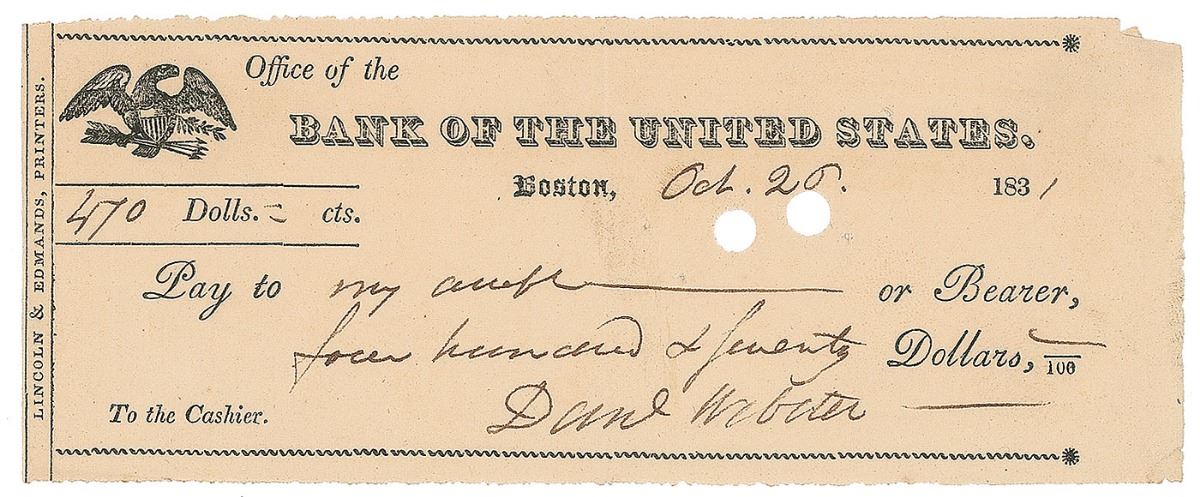 LINCOLN & EDMANDS, PRINTERS.
Office of the
BANK OF THE UNITED STATES.
Boston, Oct. 1831
470 Dolls. = cts.
Pay to my or Bearer,
four hundred & Seventy Dollars, /100
Danl Webster
To the Cashier.